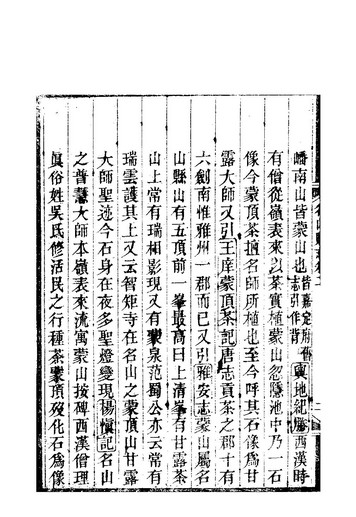 嶓南山皆蒙山也皆嘉定府舊志引作背輿地紀勝西漢時
有僧從嶺表來以茶實植蒙山忽隱池中乃一石
像今蒙頂茶擅名師所植也至今呼其石像為甘
露大師又引王庠蒙頂茶記唐志貢茶之郡十有
六劍南惟雅州一郡而已又引雅安志蒙山屬名
山縣山有五頂前一峯最高曰上清峯有甘露茶
山上常有瑞相影現又有蒙泉范蜀公亦云常有
瑞雲護其上又云智矩寺在名山之蒙頂山甘露
大師聖迹今石身在夜多聖燈變現楊慎記名山
之普慧大師本嶺表來流寓蒙山按碑西漢僧理
眞俗姓吳氏修活民之行種茶蒙頂歿化石為像